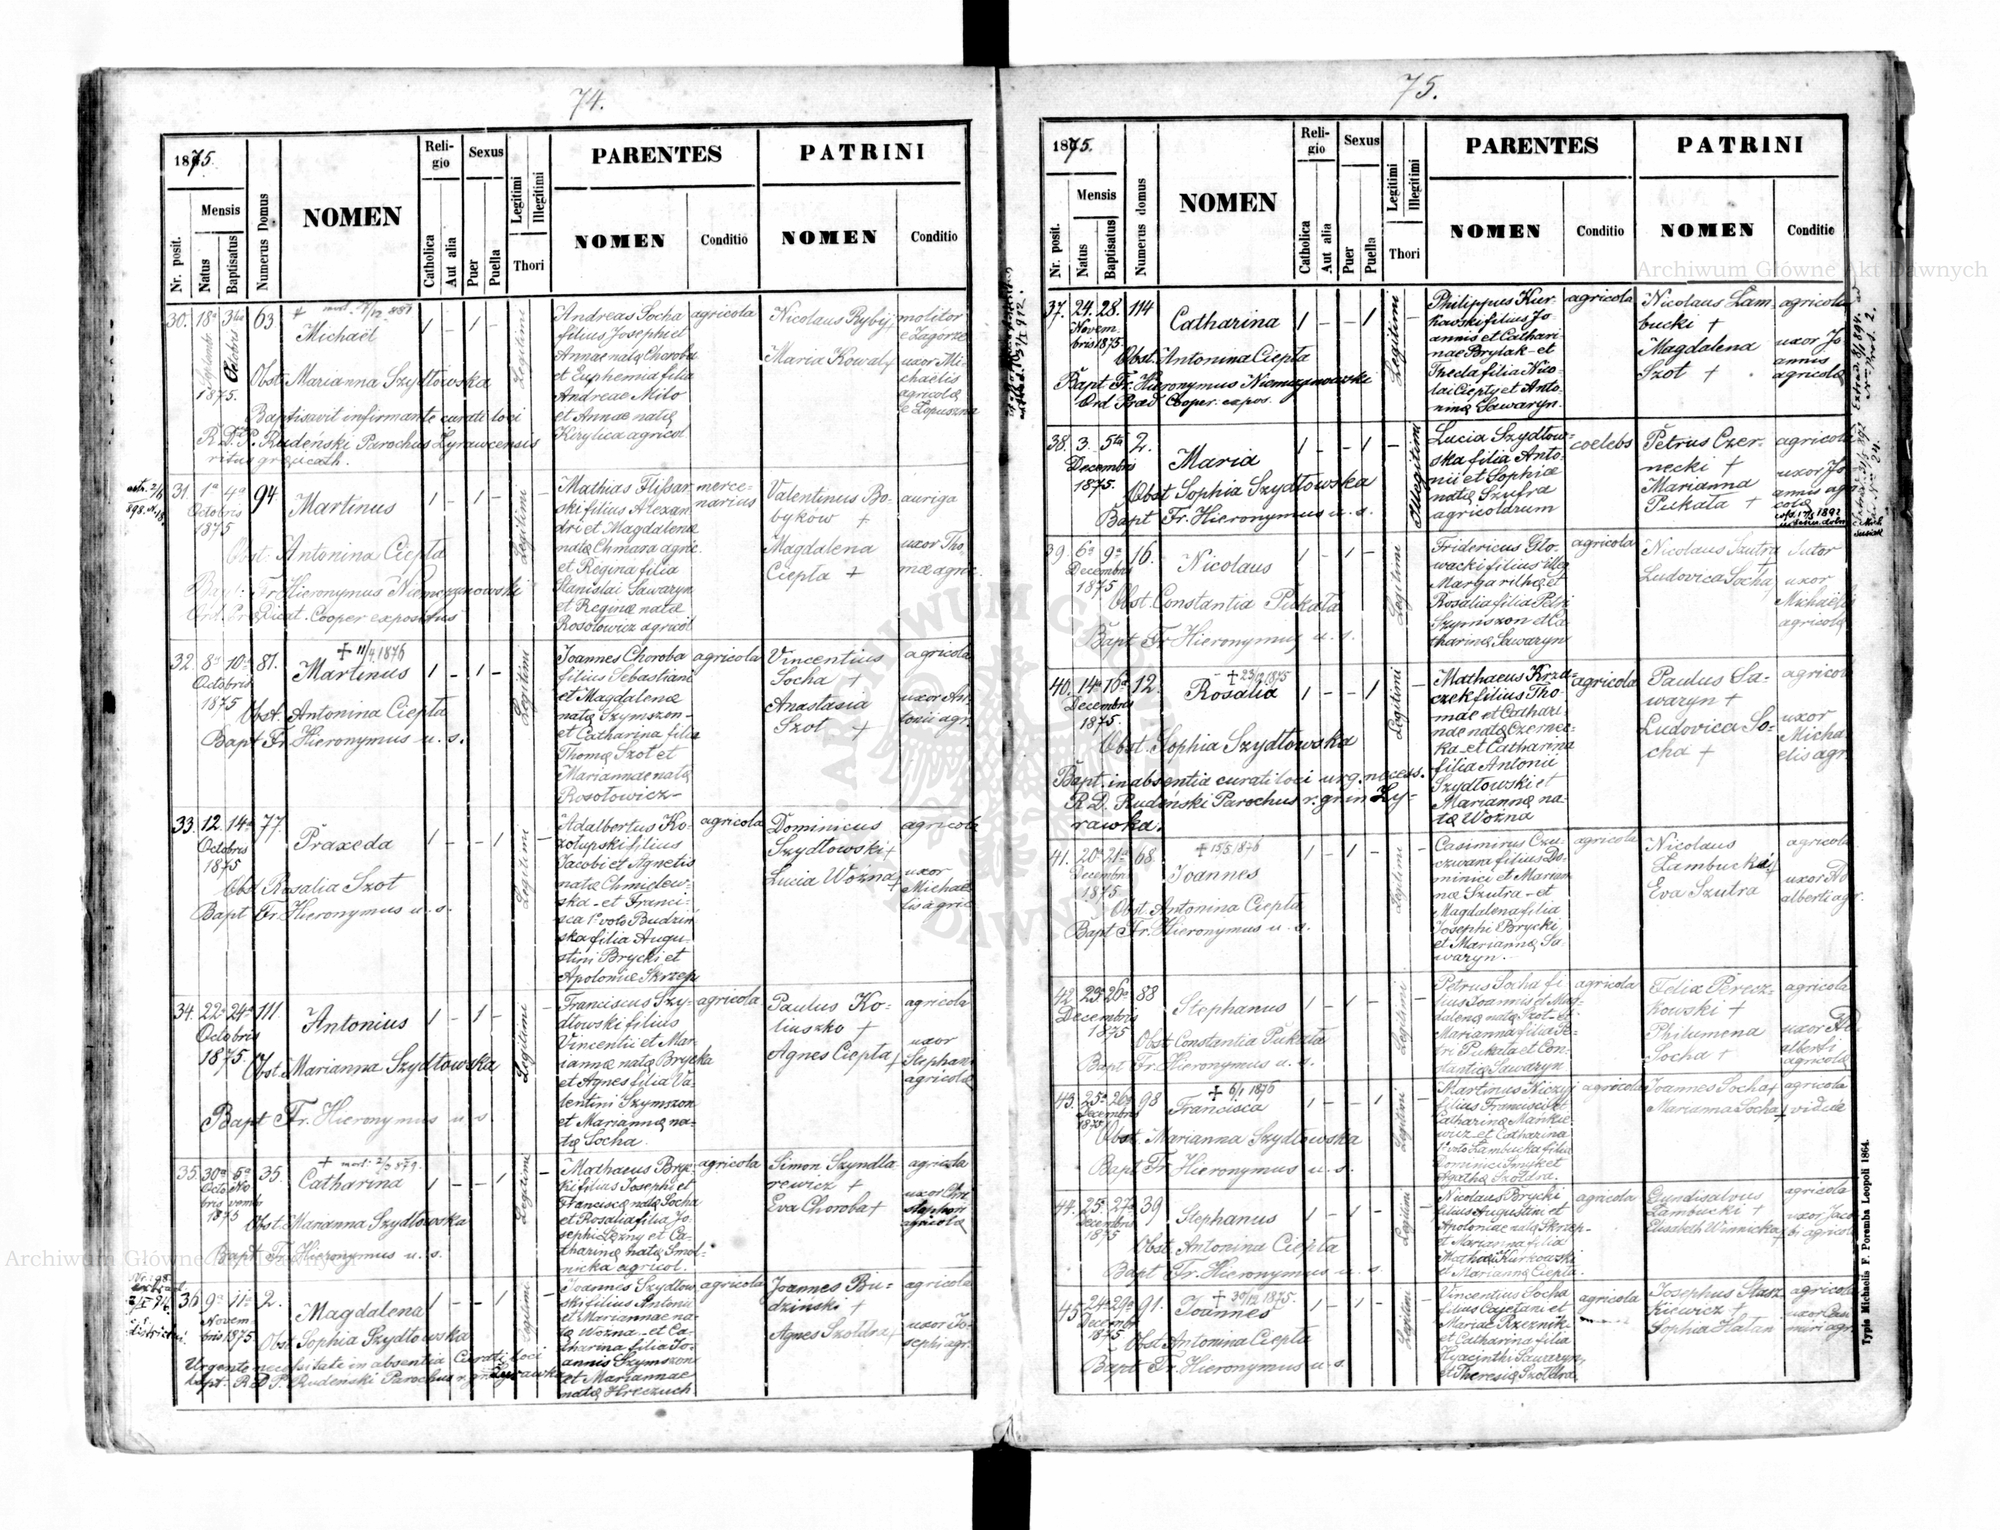 74.
1875.
Mensis
Nr. posit.
Natus
Baptisatus
Numerus Domus
NOMEN
Religio
Catholica
Aut alia
Sexus
Puer
Puella
Legitimi
Illegitimi
Thori
PARENTES
NOMEN
Conditio
PATRINI
NOMEN
Conditio
30. 18a 3tia 63
Octobris
1875.
Michaël
1 - 1 -
Legitimi
Obst. Marianna Szydłowska
Baptisavit infirmante curati loci
R. D. P. Rudeński Parochus Zyrawcensis
ritus gr. cath.
Andreas Socha
filius Josephi et
Annae natae Choroba
et Euphemia filia
Andreae Miło
et Annae natae
Kirylica agricol
agricola
Nicolaus Rybij
Maria Kowal
molitor
e Zagórze
uxor Mi-
chaelis
agricolae
e Łopuszna
31. 1a 4a 94
Octobris
1875
Martinus
1 - 1 -
Legitimi
Obst. Antonina Ciepła
Bapt. Fr. Hieronymus Niemczynowski
Ord. Praedicat. Cooper expositus
Mathias Flissar-
ski filius Alexan-
dri et Magdalena
nata Chmara agric.
et Regina filia
Stanislai Sawaryn
et Reginae natae
Rosołowicz agricol
merce-
narius
Valentinus Bo-
byków +
Magdalena
Ciepła +
auriga
uxor Tho-
mae agric.
32. 8a 10a 87.
Octobris
1875
+ 11/4 1876
Martinus
1 - 1 -
Legitimi
Obst. Antonina Ciepła
Bapt Fr. Hieronymus u. s.
Joannes Choroba
filius Sebastiani
et Magdalenae
natae Szymszon-
et Catharina filia
Thomae Szot et
Mariannae natae
Rosołowicz-
agricola
Vincentius
Socha +
Anastasia
Szot +
agricola
uxor An-
tonii agr.
33. 12. 14a 77.
Octobris
1875
Praxeda
1 - - 1
Legitimi
Obst Rosalia Szot
Bapt Fr. Hieronymus u. s.
Adalbertus Ko-
złupski filius
Jacobi et Agnetis
natae Chmielew-
ska - et Franci-
sca 1o voto Budziń-
ska filia Augu-
stini Brycki et
Apoloniae Skrzep
agricola
Dominicus
Szydłowski +
Lucia Woźna +
agricola
uxor
Michae-
lis agric
34. 22a 24a 111
Octobris
1875
Antonius
1 - 1 -
Legitimi
Obst. Marianna Szydłowska
Bapt Fr. Hieronymus u s
Franciscus Szy-
dłowski filius
Vincentii et Mar-
iannae natae Brycka
et Agnes filia Va-
lentini Szymszon
et Mariannae na-
tae Socha.
agricola
Paulus Ko-
liuszko +
Agnes Ciepła +
agricola
uxor
Stephani
agricolae
35. 30a 6a 35.
Octo- No-
bris vembr
1875
Catharina
1 - - 1
Legitimi
Obst. Marianna Szydłowska
Bapt. Fr. Hieronymus u. s.
Mathaeus Bryc-
ki filius Josephi et
Franciscae natae Socha
et Rosalia filia Jo-
sephi Leżny et Ca-
tharinae natae Smol-
nicka agricol.
agricola
Simon Szyndla-
rewicz +
Eva Choroba +
agricola
agricolae
36 9a 11a 2.
Novem-
bris 1875.
Magdalena
1 - - 1
Legitimi
Obst. Sophia Szydłowska
Urgente necessitate in absentia Curati loci
bapt. R D P. Rudeński Parochus r. gr. Zyrawka
Joannes Szydłow-
ski filius Antonii
et Mariannae na-
tae Woźna - et Ca-
tharina filia Jo-
annis Szymszon
et Mariannae
natae Hreczuch
agricola
Joannes Bu-
dzinski +
Agnes Szołdra +
agricola
uxor Jo-
sephi agr.
75.
1875.
Mensis
Nr. posit.
Natus
Baptisatus
Numerus domus
NOMEN
Religio
Catholica
Aut alia
Sexus
Puer
Puella
Legitimi
Illegitimi
Thori
PARENTES
NOMEN
Conditio
PATRINI
NOMEN
Conditio
37. 24. 28. 114
Novem-
bris 1875.
Catharina
1 - - 1
Legitimi
Obst. Antonina Ciepła
Bapt Fr. Hieronymus Niemczynowski
Ord Praed Cooper. expos.
Philippus Kier-
kowski filius Jo-
annis et Cathari-
nae Brylak - et
Thecla filia Nico-
lai Ciepły et Anto-
ninae Sawaryn.
agricola
Nicolaus Łam-
bucki +
Magdalena
Szot +
agricola
uxor Jo
annis
agricolae
38. 3. 5ta 2.
Decembris
1875.
Maria
1 - - 1
Illegitimi
Obst Sophia Szydłowska
Bapt Fr. Hieronymus u. s.
Lucia Szydłow-
ska filia Anto-
nii et Sophiae
natae Szufra
agricolarum
coelebs
Petrus Czer-
necki +
Marianna
Pukała +
agricola
uxor Jo-
annis agri
colae
39. 6a 9a 16.
Decembris
1875
Nicolaus
1 - 1 -
Legitimi
Obst. Constantia Pukała
Bapt Fr Hieronymus u. s.
Fridericus Gło-
wacki filius illeg
Margarithae et
Rosalia filia Petri
Szymszon et Ca-
tharinae Sawaryn
agricola
Nicolaus Szutra
Ludovica Socha
sutor
uxor
Michaelis
agricolae
40. 14a 16a 12.
Decembris
1875.
+ 23/12 1875
Rosalia
1 - - 1
Legitimi
Obst. Sophia Szydłowska
Bapt. in absentia curati loci urg. necess.
R. D. Rudeński Parochus r. gr. in Zy-
rawka.
Mathaeus Krza-
czek filius Tho-
mae et Cathari-
nae natae Czernec-
ka - et Catharina
filia Antonii
Szydłowski et
Mariannae na-
tae Woźna
agricola
Paulus Sa-
waryn +
Ludovica So-
cha +
agricola
uxor
Micha-
elis agr.
41. 20a 21a 68.
Decembris
1875
+ 15/5 1876
Joannes
1 - 1 -
Legitimi
Obst. Antonina Ciepła
Bapt. Fr. Hieronymus u. s.
Casimirus Czu-
czwara filius Do-
minici et Marian-
nae Szutra - et
Magdalena filia
Josephi Brycki
et Mariannae Sa-
waryn.
agricola
Nicolaus
Łambucki
Eva Szutra
agricola
uxor Ad
alberti agr.
42 25a 26a 88
Decembris
1875
Stephanus
1 - 1 -
Legitimi
Obst Constantia Pukała
Bapt Fr. Hieronymus u. s.
Petrus Socha fi-
lius Joannis et Mag-
dalenae natae Szot - et
Marianna filia Pe-
tri Pukała et Con-
stantiae Sawaryn
agricola
Felix Perecz-
kowski +
Philumena
Socha +
agricola
uxor Ad
alberti
agricolae
43. 25a 26a 98
Decembris
1875
+ 6/1 1876
Francisca
1 - - 1
Legitimi
Obst. Marianna Szydłowska
Bapt Fr. Hieronymus u. s.
Martinus Niczyj
filius Francisci et
Catharinae Mańkie-
wicz - et Catharina
1o voto Łambucka filia
Dominici Smyk et
Agathae Szołdra.
agricola
Joannes Socha +
Marianna Socha +
agricola
vidua
44. 25. 27a 39
Decembris
1875
Stephanus
1 - 1 -
Legitimi
Obst. Antonina Ciepła
Bapt Fr. Hieronymus u. s.
Nicolaus Brycki
filius Augustini et
Apoloniae natae Skrzep-
et Marianna filia
Mathaei Kurkowski
et Mariannae Ciepła.
agricola
Gundisalvus
Łambucki +
Elisabeth Winnicka +
agricola
uxor Jaco-
bi agricol
45. 24a 29a 91.
Decembr
1875
+ 30/12 1875
Joannes
1 - 1 -
Legitimi
Obst Antonina Ciepła
Bapt Fr. Hieronymus u. s.
Vincentius Socha
filius Cajetani et
Mariae Rzeznik
et Catharina filia
Hyacinthi Sawaryn
et Theresiae Szołdra
agricola
Josephus Stasz-
kiewicz +
Sophia Hałan
agricola
uxor Casi-
miri agr.
Typis Michaelis F. Poremba Leopoli 1864.
Archiwum Główne Akt Dawnych
Archiwum Główne Akt Dawnych
ARCHIWUM GŁÓWNE AKT DAWNYCH